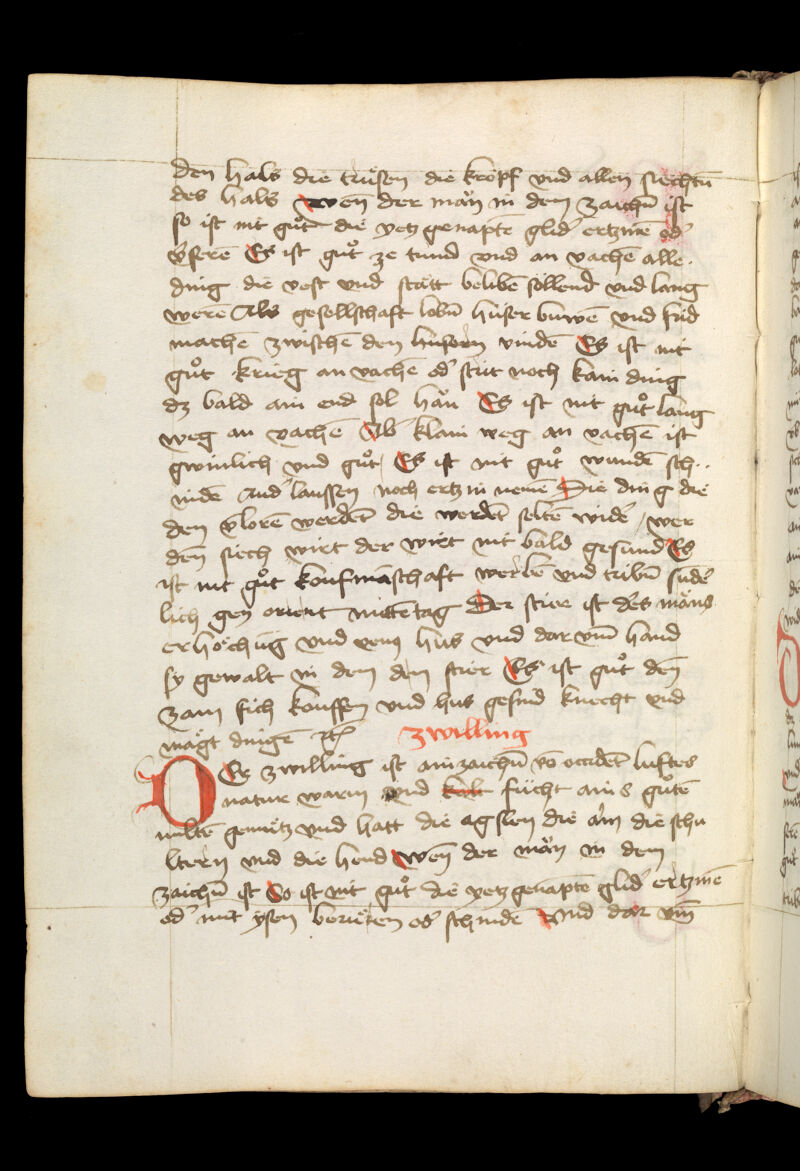 den hals die trüsen die kröpf vnd allen siechtū
des hals wen̄ der man̄ in dem zaichn̄ ist
so ist nit gůt die yetz genapte glid' ertznē od'
v̓serē Es ist gůt ze tund vnd an vachē alle
ding die vest vnd stätt belibē söllend vnd lang
werē Als gesellschaft lobn̄ hüser buwē vnd frid
machē zwischē den hüsern vindē Es ist nit
gůt krieg an vachē od' strit noch kain ding
dz bald ain end sol han Es ist nit gůt lang
weg an vachē Ab' klain weg an vachē ist
gwinlich vnd gůt Es ist nit gůt wundē sch
nidē Aud' laussen noch ertzni nemē Die ding die
den v̓lorē werdēt die werdēt seltē wid'e wer
den̄ siech wirt der wirt nit bald gesund Es
ist nit gůt koufmāschaft werbē vnd tribn̄ sund'e
lich gen orient mittētag Der stier ist des māns
erhöchūg vnd ven9 hus vnd dar vm̄ hand
sy gewalt in dem dem stier Es ist gůt den̄
zam fich kouffen vnd hus gesind knecht vnd
mägt dingē etc
zwilling
DEr zwilling ist ain zaichn̄ vō occidēt luftes
natur warm vnd fücht ains gůtē
miltē gemütz vnd hatt die agslen die arm die schu
ltern vnd die hend wen̄ der man̄ in dem
zaichn̄ ist So ist nit gůt die yetz genaptē glid' ertznē
od' mit ysen berüren od' schnidē Vnd dar vm̄